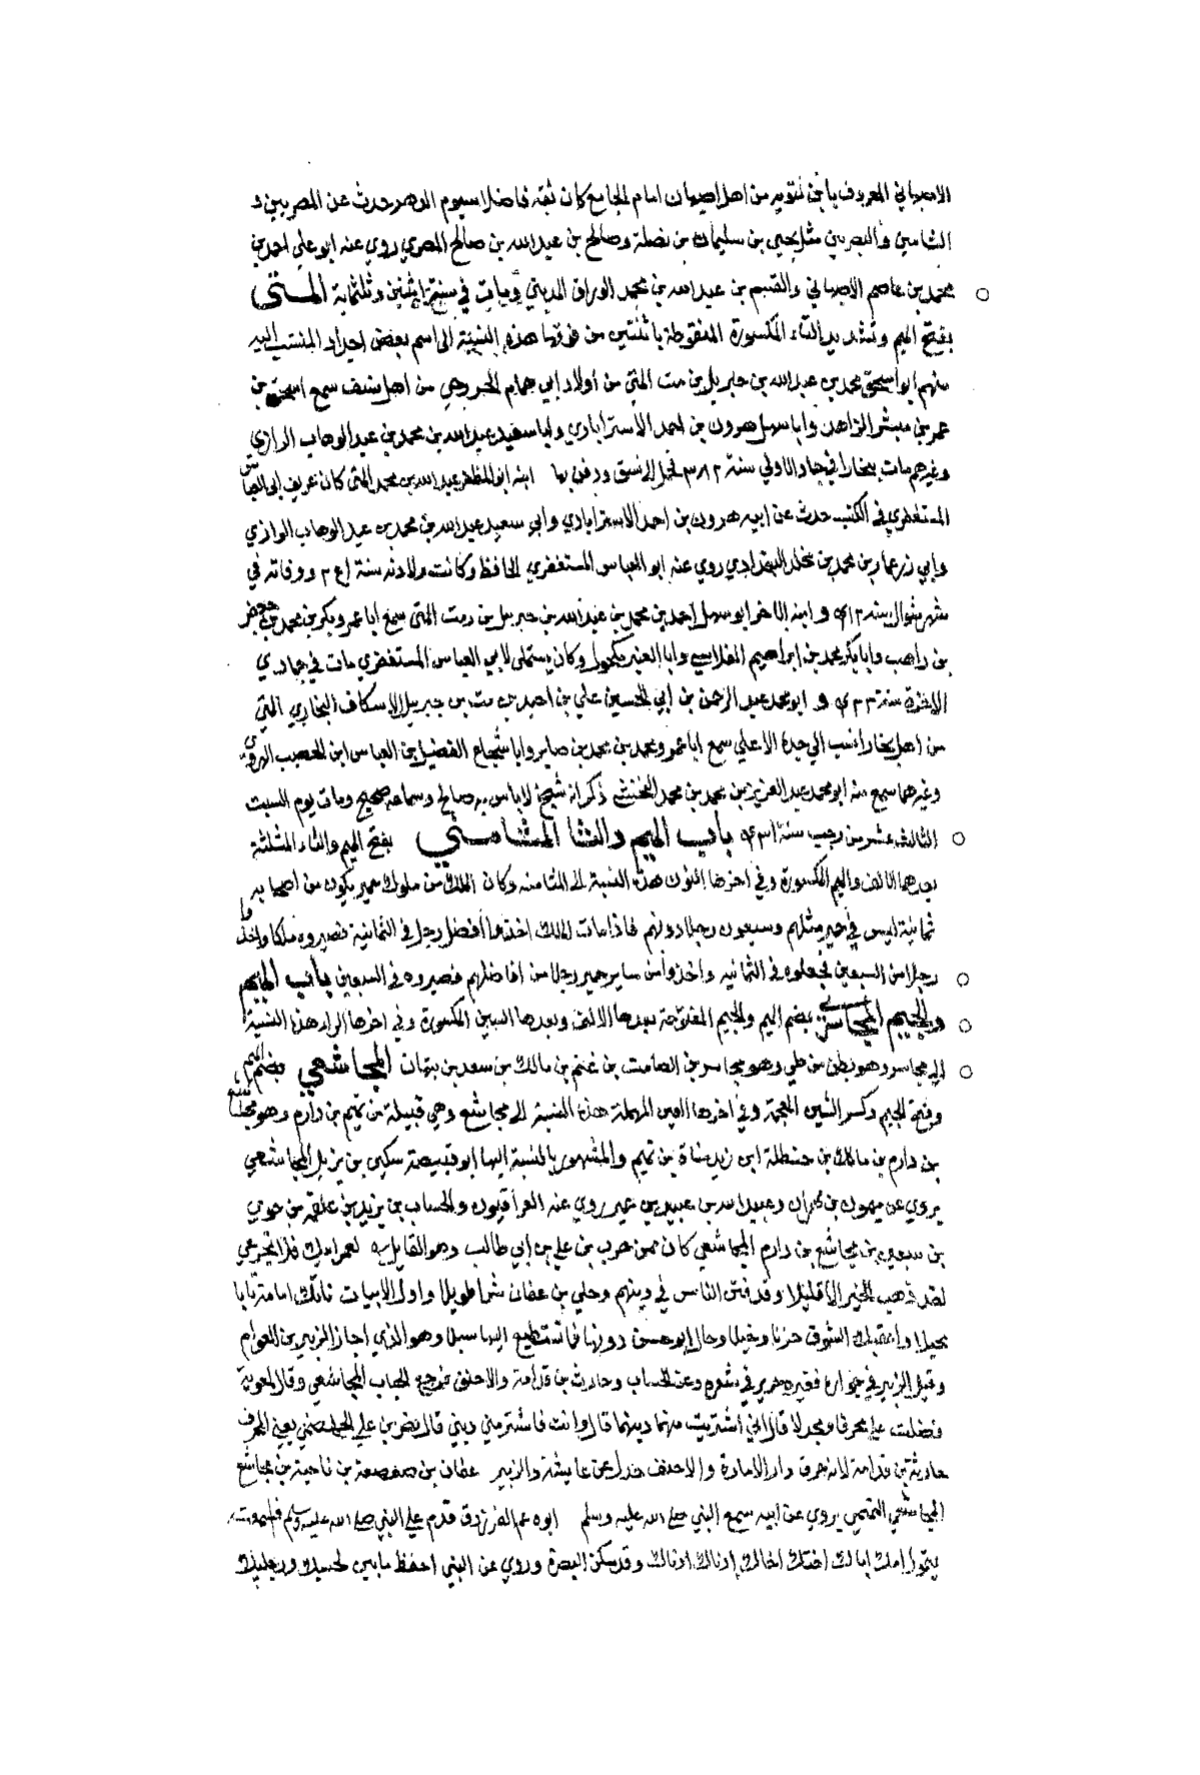 الاصبهاني المعروف بابن متويه من اهل اصبهان امام الجامع كان ثقة فاضلا يصوم الدهر حدث عن المصريين و
الشاميين والبصريين مثل يحيى بن سليمان بن نضلة وصالح بن عبد الله بن صالح المصري روي عنه ابو علي احمد بن
محمد بن عاصم الاصبهاني والقسم بن عبد الله بن محمد الوراق المديني ومات في سنة اثنين وثلثماية المتى
بفتح الميم وتشديد التاء المكسورة المنقوطة باثنتين من فوقها هذه النسبة الى اسم بعض اجداد المنتسب اليه
منهم ابو اسحق محمد بن عبد الله بن جبريل بن مت المتي من أولاد ابي همام من اهل نسف سمع اسحق بن
عمر بن مبشر الزاهد وابا سهل هرون بن احمد الاسترابادي وابا سعيد عبد الله بن محمد بن عبد الوهاب الرازي
وغيرهم مات ببخارا في جمادى الاولي سنة فحمل الى نسف ودفن بها ابنه ابو المظفر عبد الله بن محمد المتى كان عريف ابى العباس
المستغفري في الكتب حدث عن ابيه هرون بن احمد الاسترابادي وابي سعيد عبد الله بن محمد بن عبد الوهاب الرازي
وابي زر عمار بن محمد بن مخلد البغدادي روي عنه ابو العباس المستغفري الحافظ وكانت ولادته سنة ووفاته في
شهر شوال سنة و ابنه الاخر ابو سهل احمد بن محمد بن عبد الله بن جبريل بن مت المتى سمع ابا عمرو بكر بن محمد بن جعفر
بن راهب وابا بكر محمد بن ابراهيم القلانسي وابا العنبر وكان يستملى لابي العباس المستغفري مات في جمادي
الاخرة سنة و ابو محمد عبد الرحمن بن ابي الحسين علي بن احمد بن مت بن جبريل الاسكاف البخاري المتي
من اهل بخارا نسب الي جده الاعلي سمع ابا عمرو محمد بن محمد بن صابر وابا شجاع الفضيل بن العباس ابن الخصيب الهروي
وغيرهما سمع منه ابو محمد عبد العزيز بن محمد بن محمد النخشبي ذكر انه شيخ لا باس به صالح وسماعه صحيح ومات يوم السبت
الثالث عشر من رجب سنة باب الميم والثا المثامني بفتح الميم والثاء المثلثة
بعدهما الالف والميم المكسورة وفي اخرها النون هذه النسبة الى المثامنة وكان الملك من ملوك حمير يكون من اصحابه
ثمانية ليس في حمير مثلهم وسبعون رجلا دونهم فاذا مات الملك اخذوا أفضل رجل في الثمانية فصيروه ملكا واخذوا
رجلا من السبعين فجعلوه في الثمانيه واخذوا من ساير حمير رجلا من افاضلهم فصيروه في السبعين باب الميم
والجيم المجاسري بضم الميم والجيم المفتوحة بعدها الالف وبعدها السين المكسورة وفي اخرها الراء هذه النسبة
الى مجاسر وهو بطن من طي وهو مجاسر بن الصامت بن غنم بن مالك بن سعد بن نبهان المجاشعي بضم الميم
وفتح الجيم وكسر الشين المعجمة وفي اخرها العين المهملة هذه النسبة الى مجاشع وهي قبيلة من تميم بن دارم وهو مجاشع
بن دارم بن مالك بن حنظلة ابن زيد مناة بن تميم والمشهور بالنسبة اليها ابو قبيصة سكين بن يزيد المجاشعي
يروي عن ميمون بن مهران وعبيد الله بن عبيد بن عمير روي عنه العراقيون والحتات بن يزيد بن علقمة بن حوي
بن سفين بن مجاشع بن دارم المجاشعي كان ممن حرب بن علي بن ابي طالب وهو القايل لعمر ابيك فلا تجزعي
لقد ذهب الخير الا قليلا وقد فتن الناس في دينهم وخلى بن عفان شرا طويلا واول الابيات نأتك امامة نأيا
محيلا واعقبك الشوق حزنا دخيلا وحال ابو حسن دونها فما تستطيع اليها سبيلا وهو الذي اجاز الزبير بن العوام
وقتل الزبير في جواره فعيره جرير في شعره وعن الحتات وحارثة بن قدامة والاحنف فرجع الحتات المجاشعي وقال لمعوية
فضلت علي محرقا ومخذلا قال اني اشتريت منهما دينهما قال وانت فاشتر مني ديني قال نصر بن علي الجهضمي يعني المحرق
حارثة بن قدامة لانه حرق دار الامارة والاحنف خذل عن عايشة والزبير عقال بن صعصعة بن ناجية بن مجاشع
المجاشعي التميمي يروي عن ابيه سمع النبي صلى الله عليه وسلم ابوه عم الفرزدق قدم علي النبي صلى الله عليه وسلم فسمعته
يقول امك اباك اختك اخاك ادناك ادناك وقد سكن البصرة وروي عن النبي احفظ ما بين لحييك ورجليك